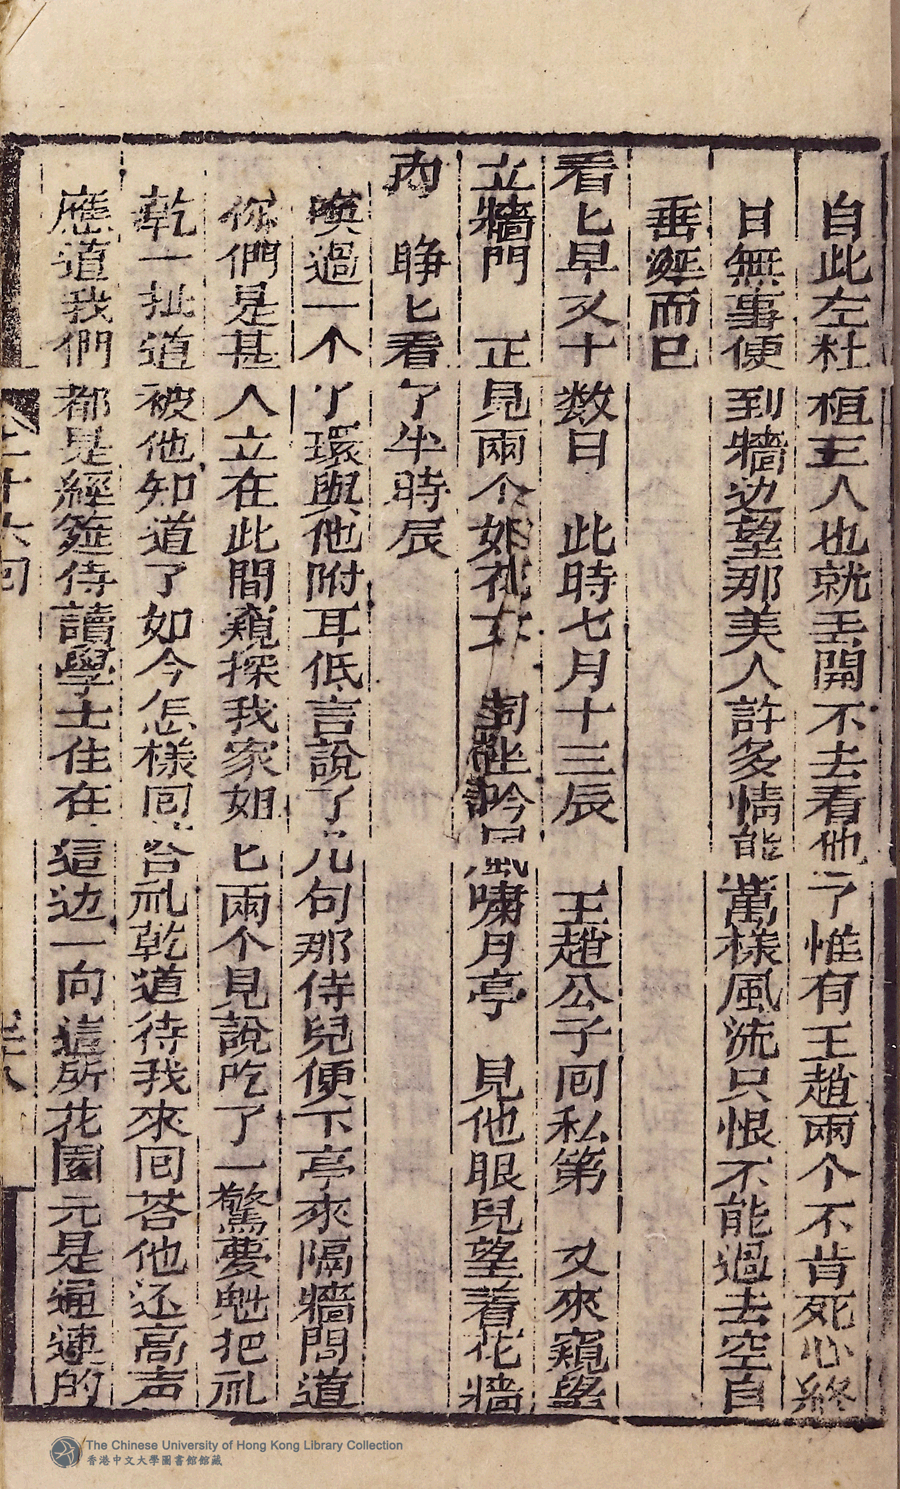 自此左杜桓三人也就丟開不去看他了惟有王趙兩个不肯死心終
日無事便到牆边望那美人許多情能萬樣風流只恨不能過去空自
垂涎而已
看匕早又十数日 此時七月十三辰 王趙公子囘私第 又來窺望
立牆門 正見兩个如花女 同坐吟風嘯月亭 見他眼兒望着花牆
內 睁匕看了半時辰
喚過一个了環與他附耳低言說了几句那侍兒便下亭來隔牆問道
你們是甚人立在此間窺探我家姐匕兩个見說吃了一驚夢魁把礼
乾一扯道被他知道了如今怎樣囘荅礼乾道待我來囘荅他还高声
應道我們都是經筵侍讀學士住在這边一向這所花園元是通連的
二十六囘
The Chinese University of Hong Kong Library Collection
香港中文大學圖書館館藏